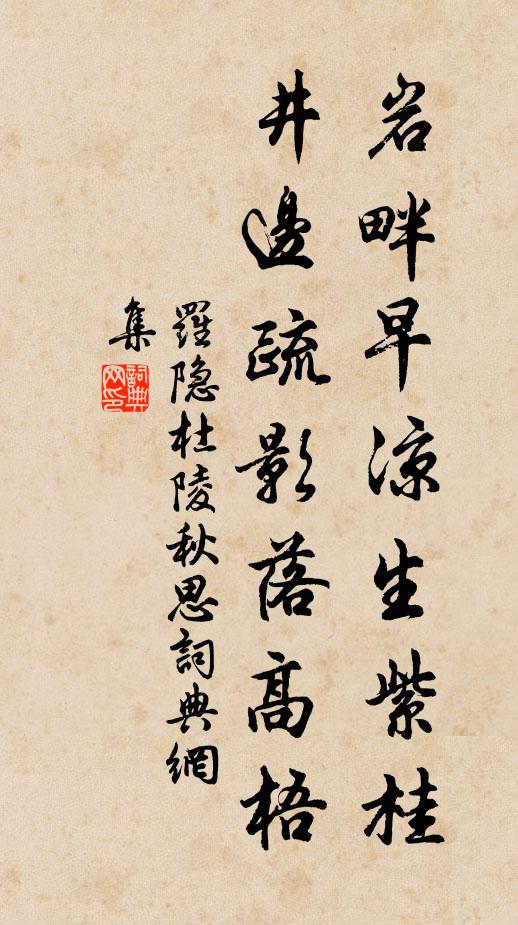 岩畔早凉生紫桂
井邊疏影落高梧
羅隐杜陵秋思詞典網
集
詞典網印